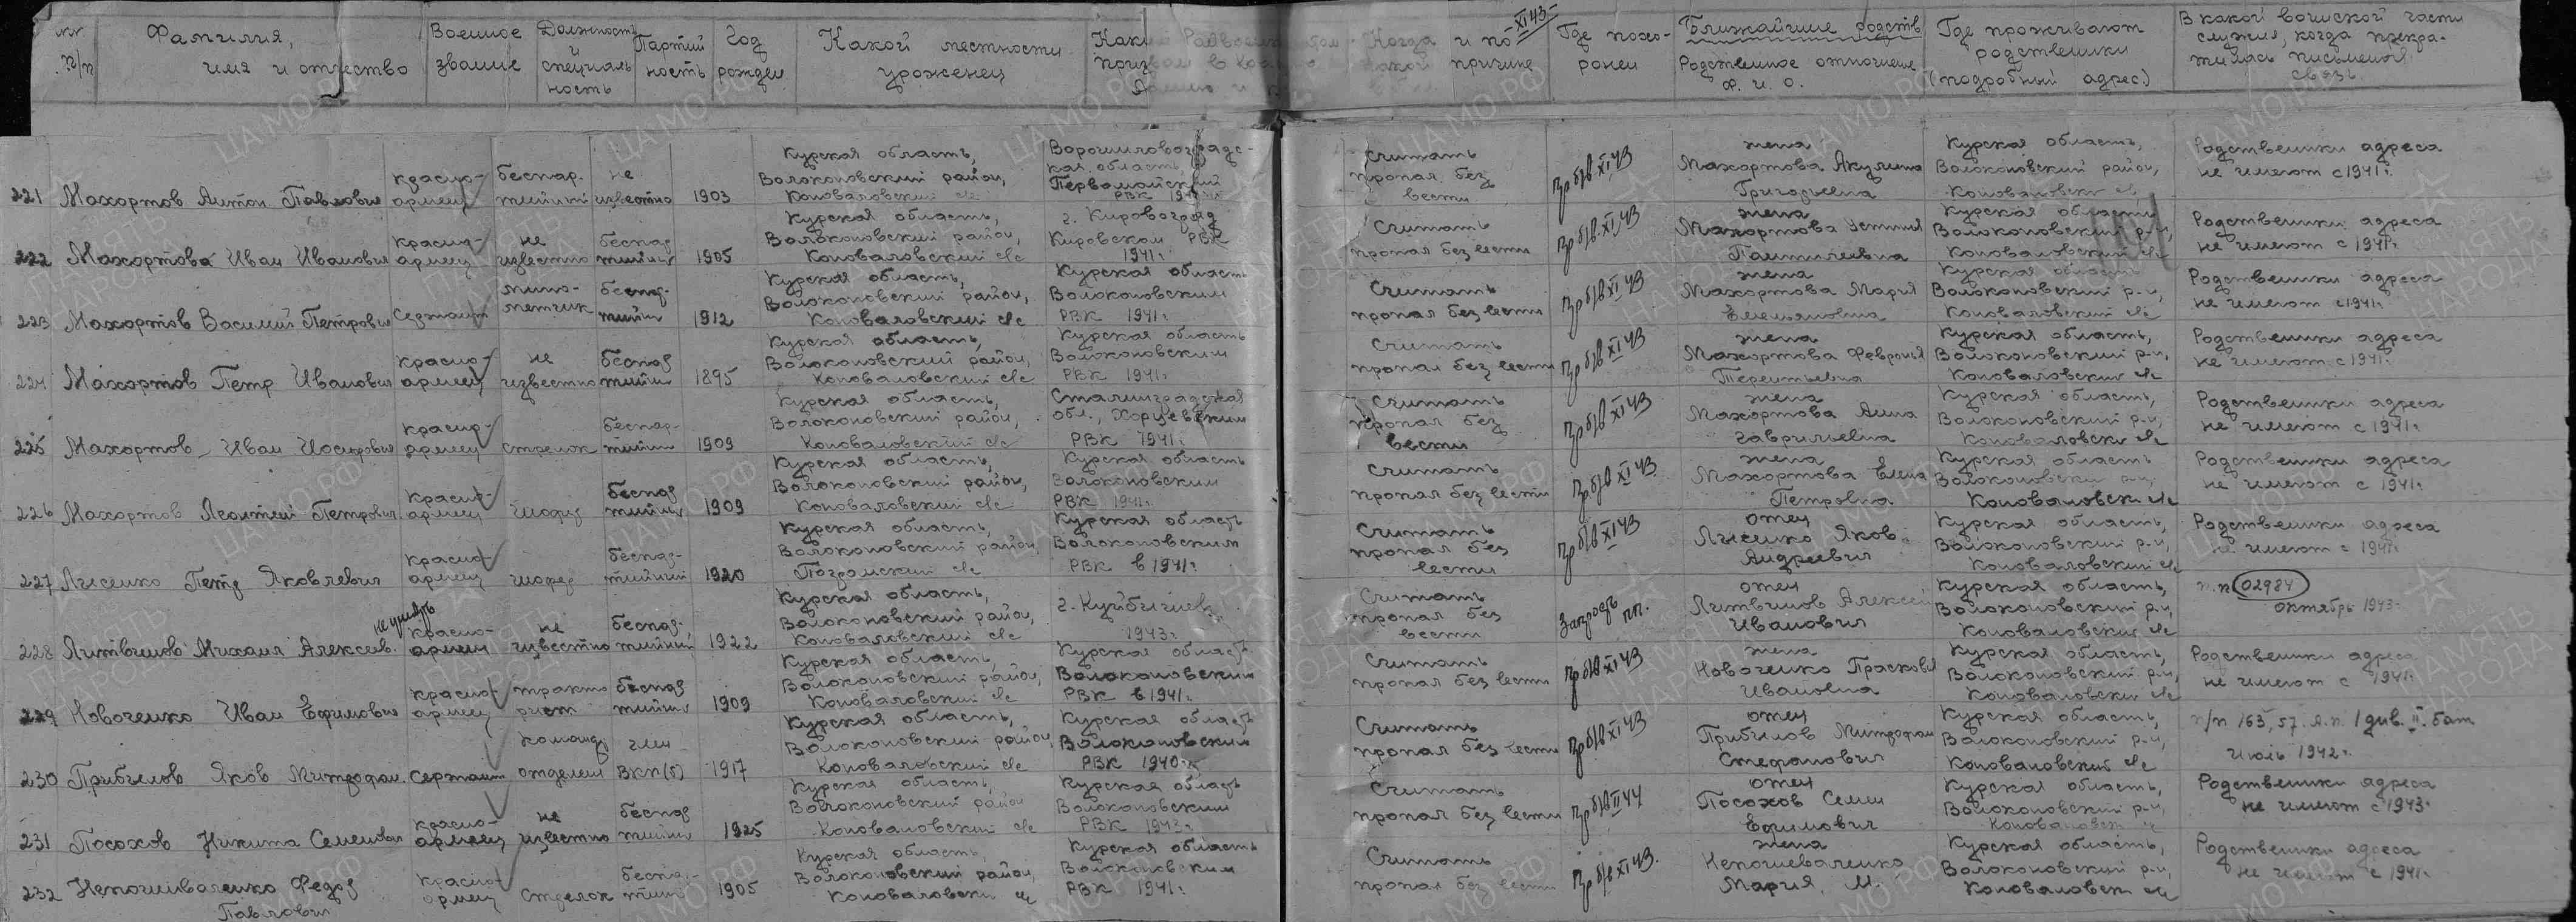 №№ п/п
Фамилия, имя и отчество
Военное звание
Должность и специальность
Партийность
Год рожден.
Какой местности уроженец
Когда и по какой причине
XI 43
Где похоронен
Ближайшие родств
Родственное отношение Ф. И. О.
Где проживают родственники (подробный адрес)
В какой воинской части служил, когда прекратилась письменная связь
221 Махортов Антон Павлович
красноармеец
беспартийный
не известно
1903
Курская область, Волоконовский район, Коноваловский с/с
Ворошиловоградская область Первомайский РВК
Считать пропал без вести
Пр б/в XI 43
жена Махортова Акулина Григорьевна
Курская область, Волоконовский район, Коновановски с/с
Родственники адреса не имеют с 1941г.
222 Махортова Иван Иванович
красноармеец
не известно
беспартийный
1905
Курская область, Волоконовский район, Коноваловский с/с
г. Кировоград Кировском РВК 1941г.
Считать пропал без вести
Пр б/в XI 43
жена Махортова Устинья Пантилеевна
Курская область Волоконовский р-н, Коноваловский с/с
Родственники адреса не имеют с 1941г.
223 Махортов Василий Петрович
Сержант
минометчик
беспартийн
1912
Курская область, Волоконовский район, Коноваловский с/с
Курская область Волоконовским РВК 1941г.
Считать пропал без вести
Пр б/в XI 43
жена Махортова Мария Емельяновна
Курская область Волоконовский р-н, Коноваловский с/с
Родственники адреса не имеют с 1941г.
224 Махортов Петр Иванович
красноармеец
не известно
беспартийн
1895
Курская область, Волоконовский район, Коноваловский с/с
Курская область Волоконовским РВК 1941г.
Считать пропал без вести
Пр б/в XI 43
жена Махортова Февронья Терентьевна
Курская область, Волоконовский р-н, Коноваловский с/с
Родственники адреса не имеют с 1941г.
225 Махортов Иван Иосифович
красноармеец
стрелок
беспартийн
1909
Курская область, Волоконовский район, Коноваловский с/с
Сталинградская обл., РВК 1941г.
Считать пропал без вести
Пр б/в XI 43
жена Махортова Анна Гаврильевна
Курская область, Волоконовский р-н, Коноваловски с/с
Родственники адреса не имеют с 1941г.
226 Махортов Леонтий Петрович
красноармеец
шофер
беспартийн
1909
Курская область, Волоконовский район, Коноваловский с/с
Курская область Волоконовским РВК 1941г.
Считать пропал без вести
Пр б/в XI 43
жена Махортова Елена Петровна
Курская область Волоконовски р-н, Коноваловски с/с
Родственники адреса не имеют с 1941г.
227 Лысенко Петр Яковлевич
красноармеец
шофер
беспартийный
1920
Курская область, Волоконовский район, Погромский с/с
Курская область Волоконовским РВК в 1941г.
Считать пропал без вести
Пр б/в XI 43
отец Лысенко Яков Андреевич
Курская область, Волоконовский р-н, Коноваловский с/с
Родственники адреса не имеют с 1941г.
228 Литвинов Михаил Алексеев.
красноармеец
не известно
беспартийный
1922
Курская область, Волоконовский район, Коноваловский с/с
г. Куйбышев 1943г.
Считать пропал без вести
Запрос пп.
отец Литвинов Алексей Иванович
Курская область, Волоконовский р-н, Коноваловский с/с
п.п 02984 октябрь 1943г.
229 Новоченко Иван Ефимович
красноармеец
тракторист
беспартийн
1909
Курская область, Волоконовский район, Коноваловский с/с
Курская область Волоконовским РВК в 1941г.
Считать пропал без вести
Пр б/в XI 43
жена Новоченко Прасковья Ивановна
Курская область, Волоконовский р-н, Коноваловски с/с
Родственники адреса не имеют с 1941г.
230 Прибылов Яков Митрофан.
Сержант
команд отделен
член ВКП(б)
1917
Курская область, Волоконовский район, Коноваловский с/с
Курская область Волоконовским РВК 1940г.
Считать пропал без вести
Пр б/в XI 43
отец Прибылов Митрофан Стефанович
Курская область, Волоконовский р-н, Коноваловский с/с
п/п 163, 57. А.п. 1 див. II. бат июль 1942г.
231 Посохов Никита Семенович
красноармеец
не известно
беспартийн
1925
Курская область, Волоконовский район Коноваловский с/с
Курская область Волоконовским РВК 1943г.
Считать пропал без вести
Пр б/в II 44
отец Посохов Семен Ефимович
Курская область, Волоконовский р-н, Коноваловск с/с
Родственники адреса не имеют с 1943г.
232 Федор Павлович
красноармеец
Стрелок
беспартийн
1905
Курская область, Волоконовский район, Коноваловски с/с
Курская область Волоконовским РВК 1941г.
Считать пропал без вести
Пр б/в XI 43.
жена Мария. М.
Курская область, Волоконовский р-н, Коноваловски с/с
Родственники адреса не имеют с 1941г.